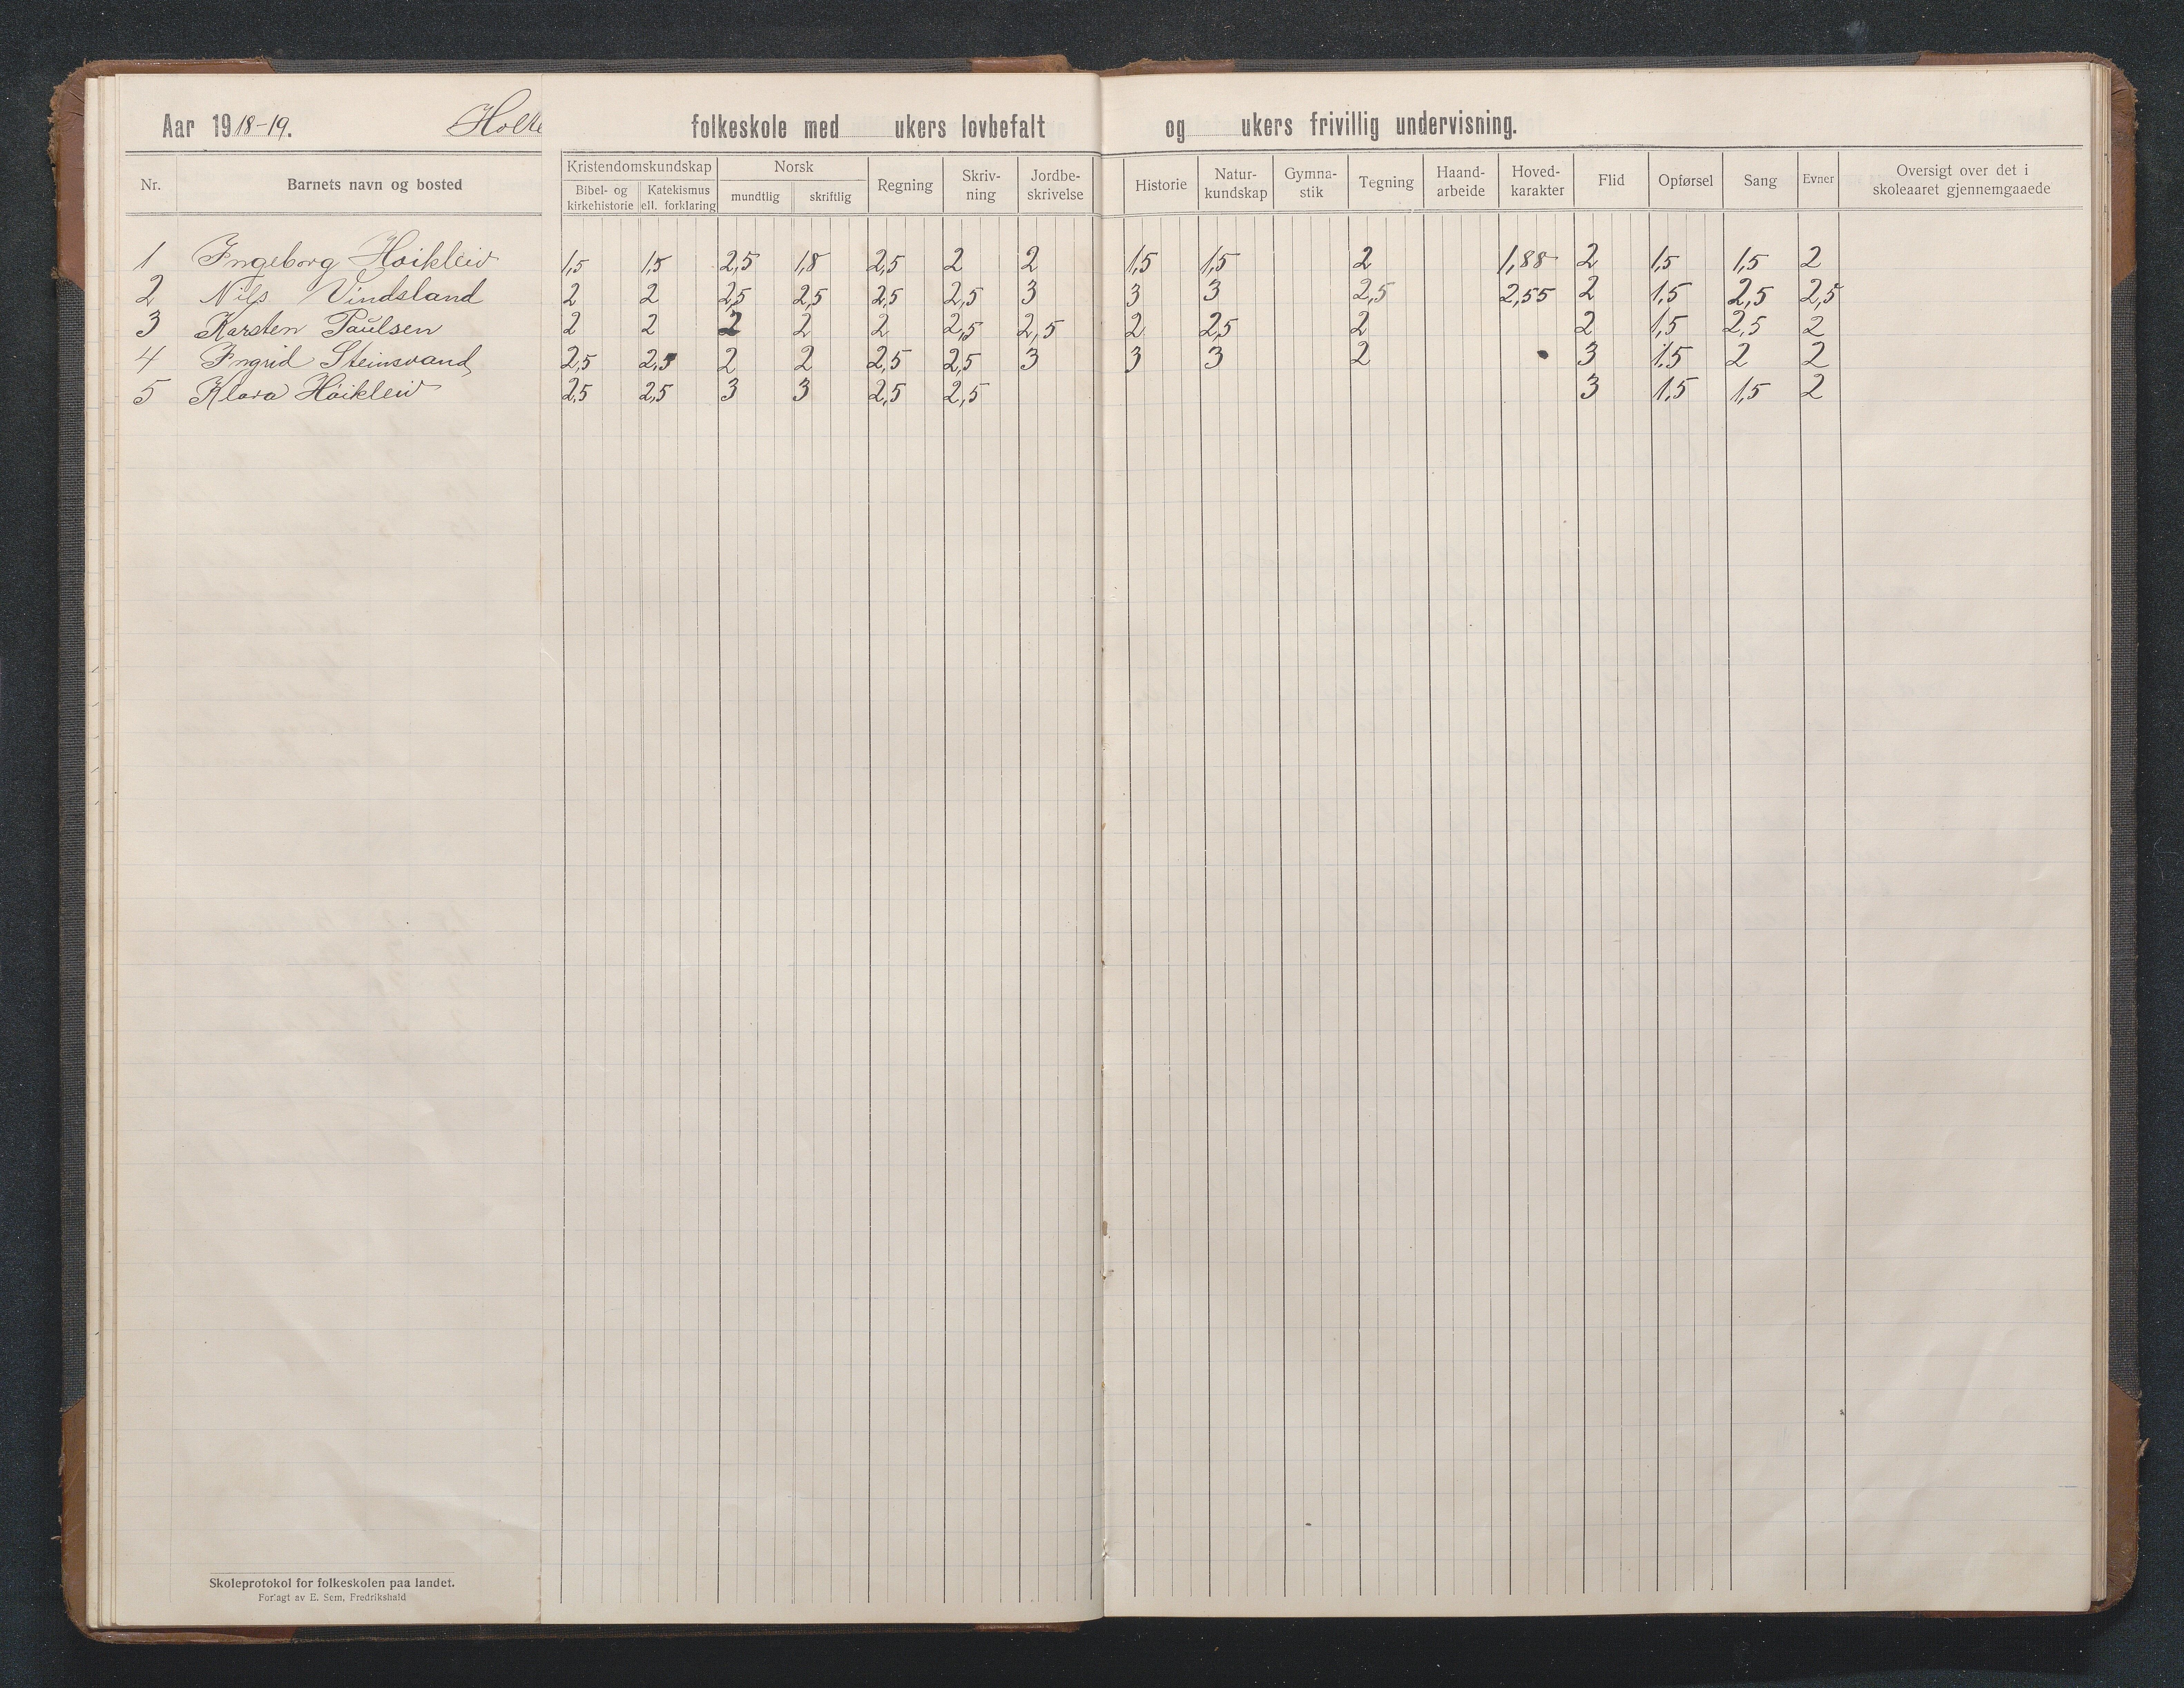 Aar 1918-19. Holte folkeskole med ukers lovbefalt og ukers frivillig undervisning.
Nr. Barnets navn og bosted Kristendomskundskap Bibel- og kirkehistorie Katekismus ell. forklaring Norsk mundtlig skriftlig Regning Skriv-ning Jordbe-skrivelse Historie Natur-kundskap Gymna-stik Tegning Haand-arbeide Hoved-karakter Flid Opførsel Sang Evner Oversigt over det i skoleaaret gjennemgaaede
1 Ingeborg Høikleiv 1,5 1,5 2,5 1,8 2,5 2 2 1,5 1,5 2 1,88 2 1,5 1,5 2
2 Nils Vindsland 2 2 2,5 2,5 2,5 2,5 3 3 3 2,5 2,55 2 1,5 2,5 2,5
3 Karsten Paulsen 2 2 2 2 2 2,5 2,5 2 2,5 2 2 1,5 2,5 2
4 Ingrid Steinsvand 2,5 2,5 2 2 2,5 2,5 3 3 3 2 3 1,5 2 2
5 Klara Høikleiv 2,5 2,5 3 3 2,5 2,5 3 1,5 1,5 2
Skoleprotokol for folkeskolen paa landet.
Forlagt av E. Sem, Fredrikshald